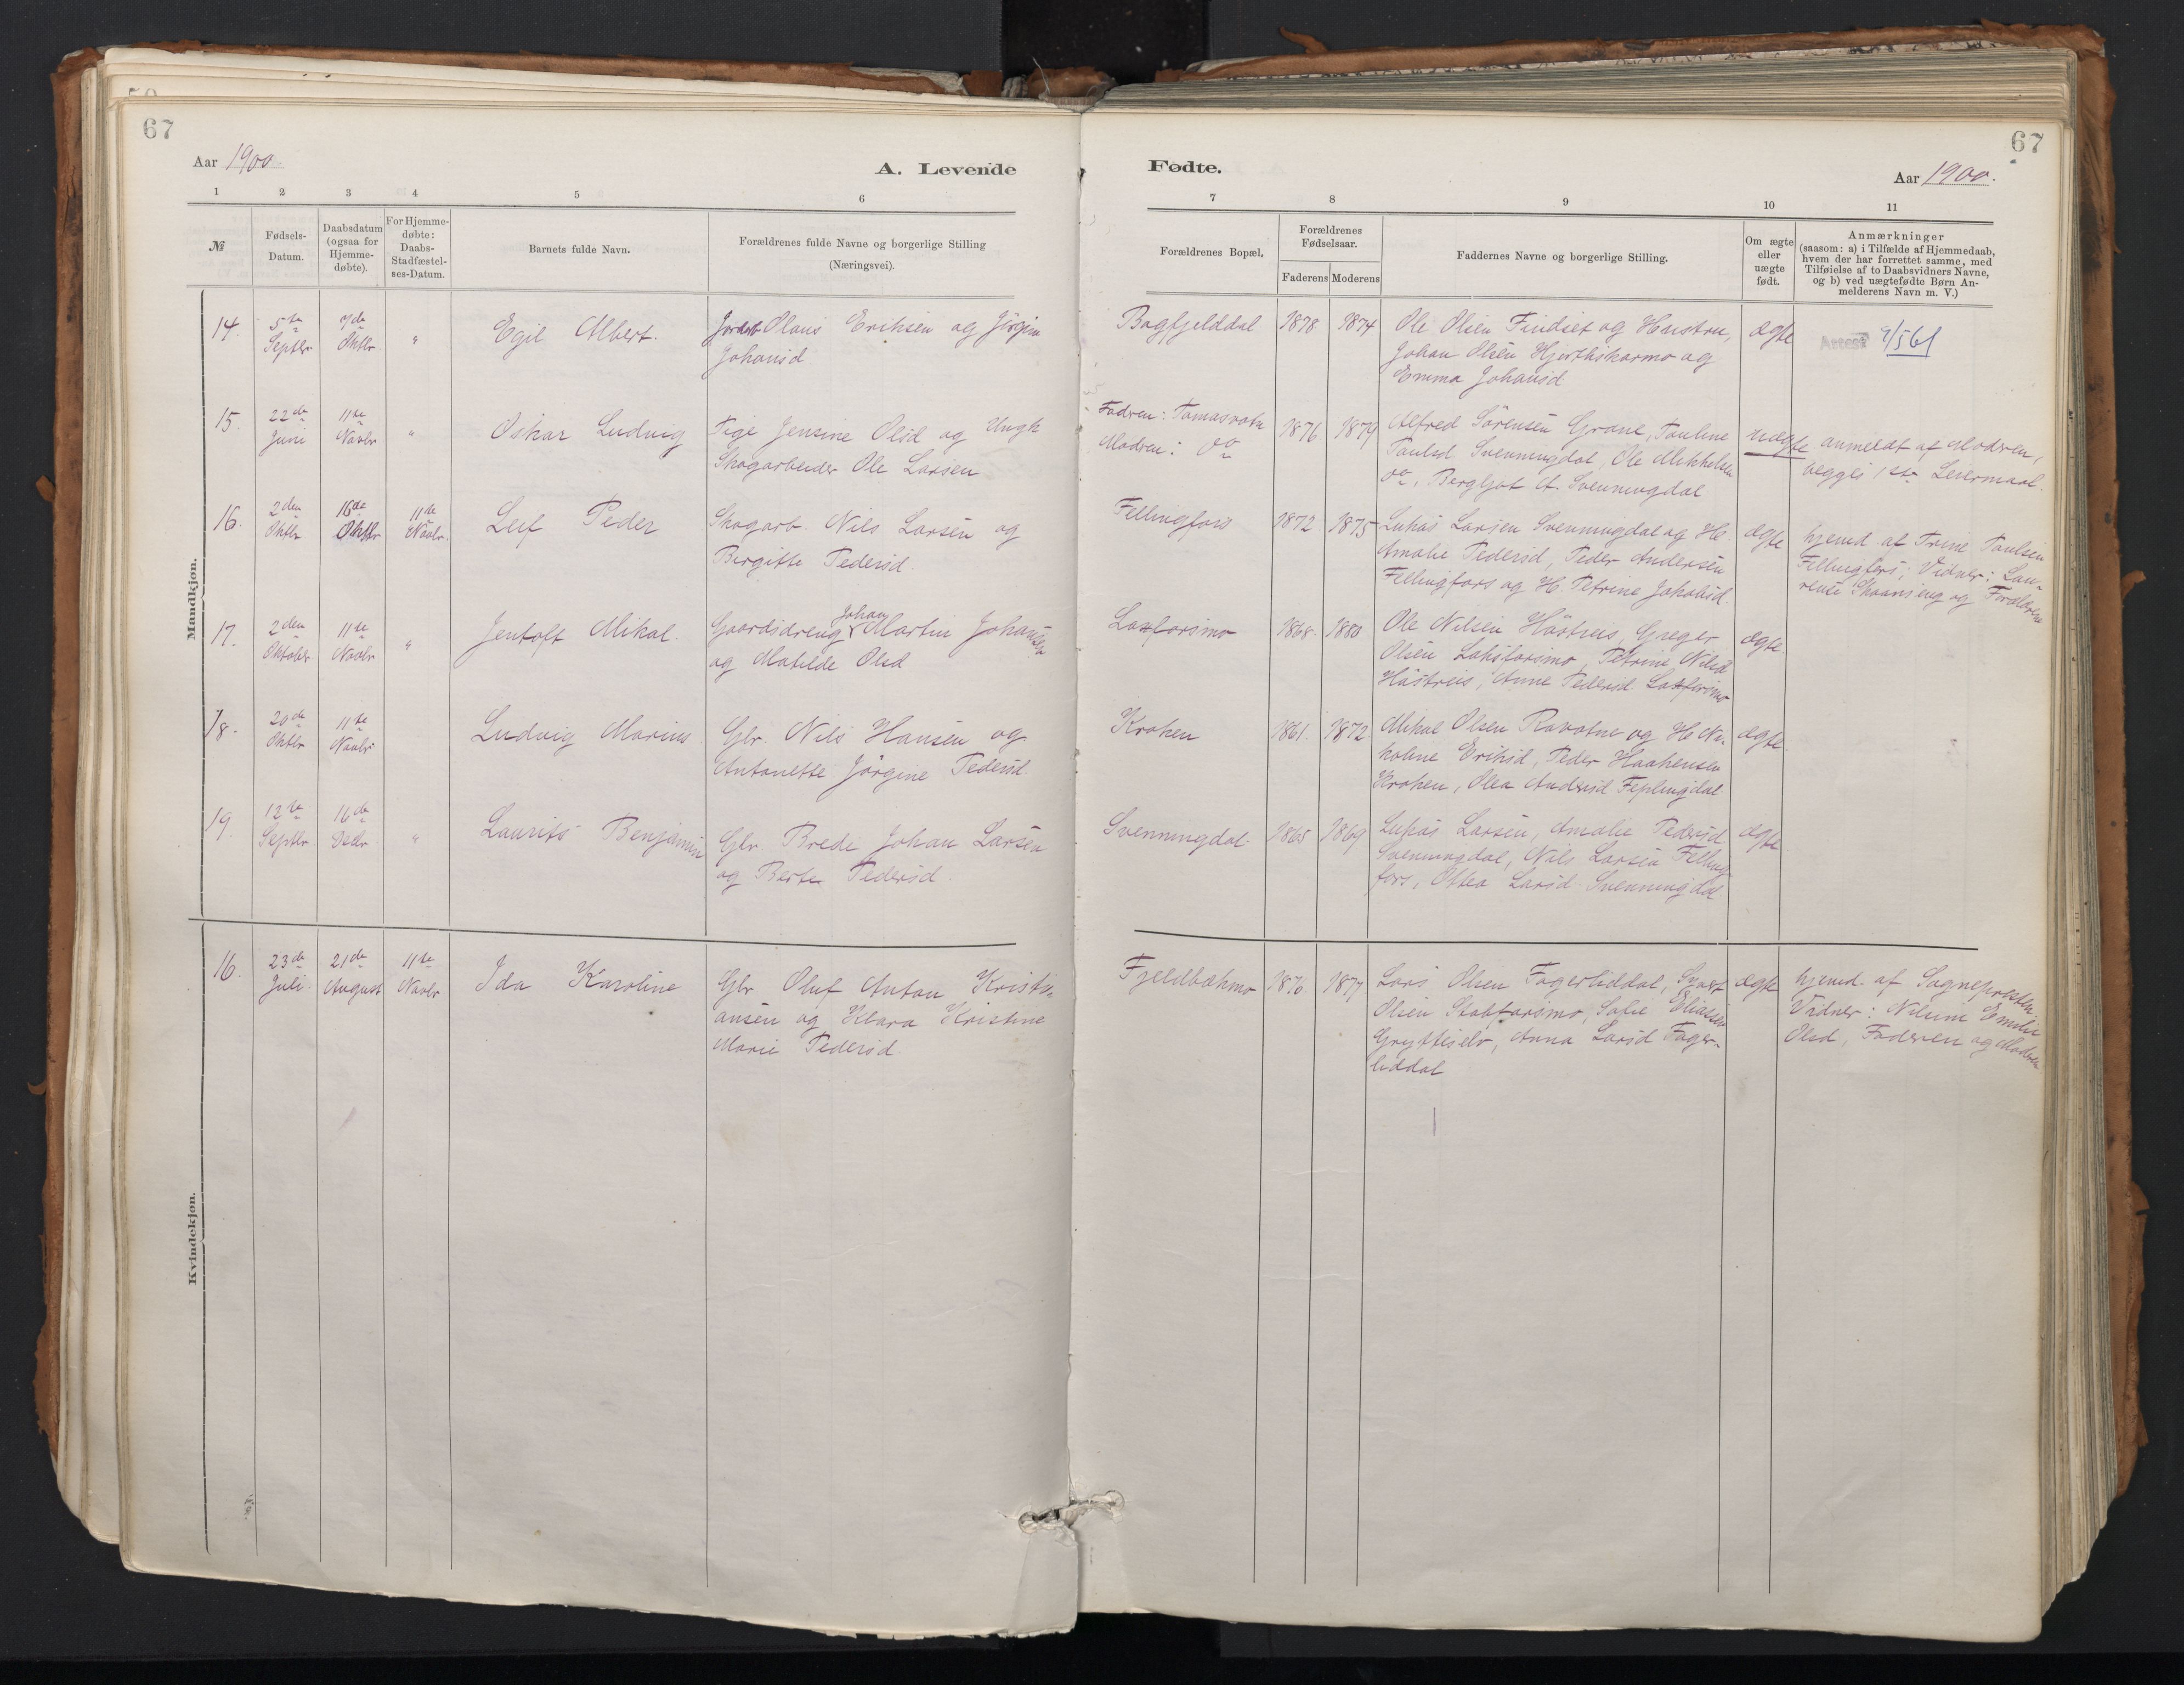 67
Aar 1900.
A. Levende
1 2 3 4 5 6
№
Fødsels-
Datum.
Daabsdatum
(ogsaa for
Hjemme-
døbte).
For Hjemme-
døbte:
Daabs-
Stadfæstel-
ses-Datum.
Barnets fulde Navn.
Forældrenes fulde Navne og borgerlige Stilling
(Næringsvei).
Mandkjøn.
14. 5te 7de
Septbr Oktbr " Egil Albert. Olaus Eriksen og Jörgine
Johansd
15. 22de 11te
Juni Novbr " Oskar Ludvig Pige Jensine Olsd og Ungk
Skogarbeider Ole Larsen
16. 2den 11te
Oktbr Oktbr Novbr. Leif Peder Skogarb. Nils Larsen og
Birgitte Pedersd.
17. 2den 11te Johan
Oktober Novbr " Jentoft Mikal. Gaardsdreng Martin Johansen
og Matilde Olsd
18. 20de 11te
Oktbr Novbr. Ludvig Marius. Gbr. Nils Hansen og
Antonette Jörgine Pedersd.
19. 12te 16de
Septbr Decbr " Laurits Benjamin Gbr. Brede Johan Larsen
og Berte Pedersd.
16. 23de 21de 11te
Juli. August Novbr Ida Karoline Gbr Oluf Anton Kristi-
ansen og Klara Kristine
Marie Pedersd.
Kvindekjøn.
67
Fødte.
Aar 1900.
7 8 9 10 11
Forældrenes Bopæl.
Forældrenes
Fødselsaar.
Faderens Moderens
Faddernes Navne og borgerlige Stilling.
Om ægte
eller
uægte
født.
Anmærkninger
(saasom: a) i Tilfælde af Hjemmedaab,
hvem der har forrettet samme, med
Tilføielse af to Daabsvidners Navne,
og b) ved uægtefødte Børn An-
melderens Navn m. V.)
Bagfjelddal 1878 1874 Ole Olsen Findset og Hustru, ægte Attest 9/5 61
Johan Olsen og
Emma Johansd
Fadren: 1876 1879 Alfred Sörensen Grane, Pauline uægte anmeldt af Modren,
Modren: do Paulsd Svenningdal, Ole Mikkelsen begges 1ste Leiermaal.
do, Bergljot A. Svenningdal
Fellingfors 1872 1875 Lukas Larsen Svenningdal og H. ægte hjemd. af Trine Paulsen
Amalie Pedersd, Peder Andersen Fellingfors; Vidner: Lau-
Fellingfors og H. Petrine Jakobsd. og Forældrene
Laxforsmo 1868 1880 Ole Nilsen Håstreis, Greger ægte.
Olsen Laksforsmo, Petrine Nilsd
Håstreis, Anne Pedersd Laxforsmo
Kroken 1861. 1872 Mikal Olsen Ravatne og H. Ni- ægte.
koline Eriksd, Peder Haakensen
Kroken, Olea Andersd Feplingdal
Svenningdal. 1865 1869 Lukas Larsen, Amalie Pedersd ægte
Svenningdal, Nils Larsen Felling-
fors, Ottea Larsd Svenningdal
Fjeldbækmo 1876 1877 Lars Olsen Fagerliddal, ægte hjemd. af Sognepresten.
Olsen Stabforsmo, Sofie Vidner: Nilsine Emilie
Anna Larsd Fager- Olsd, Faderen og Modren
liddal